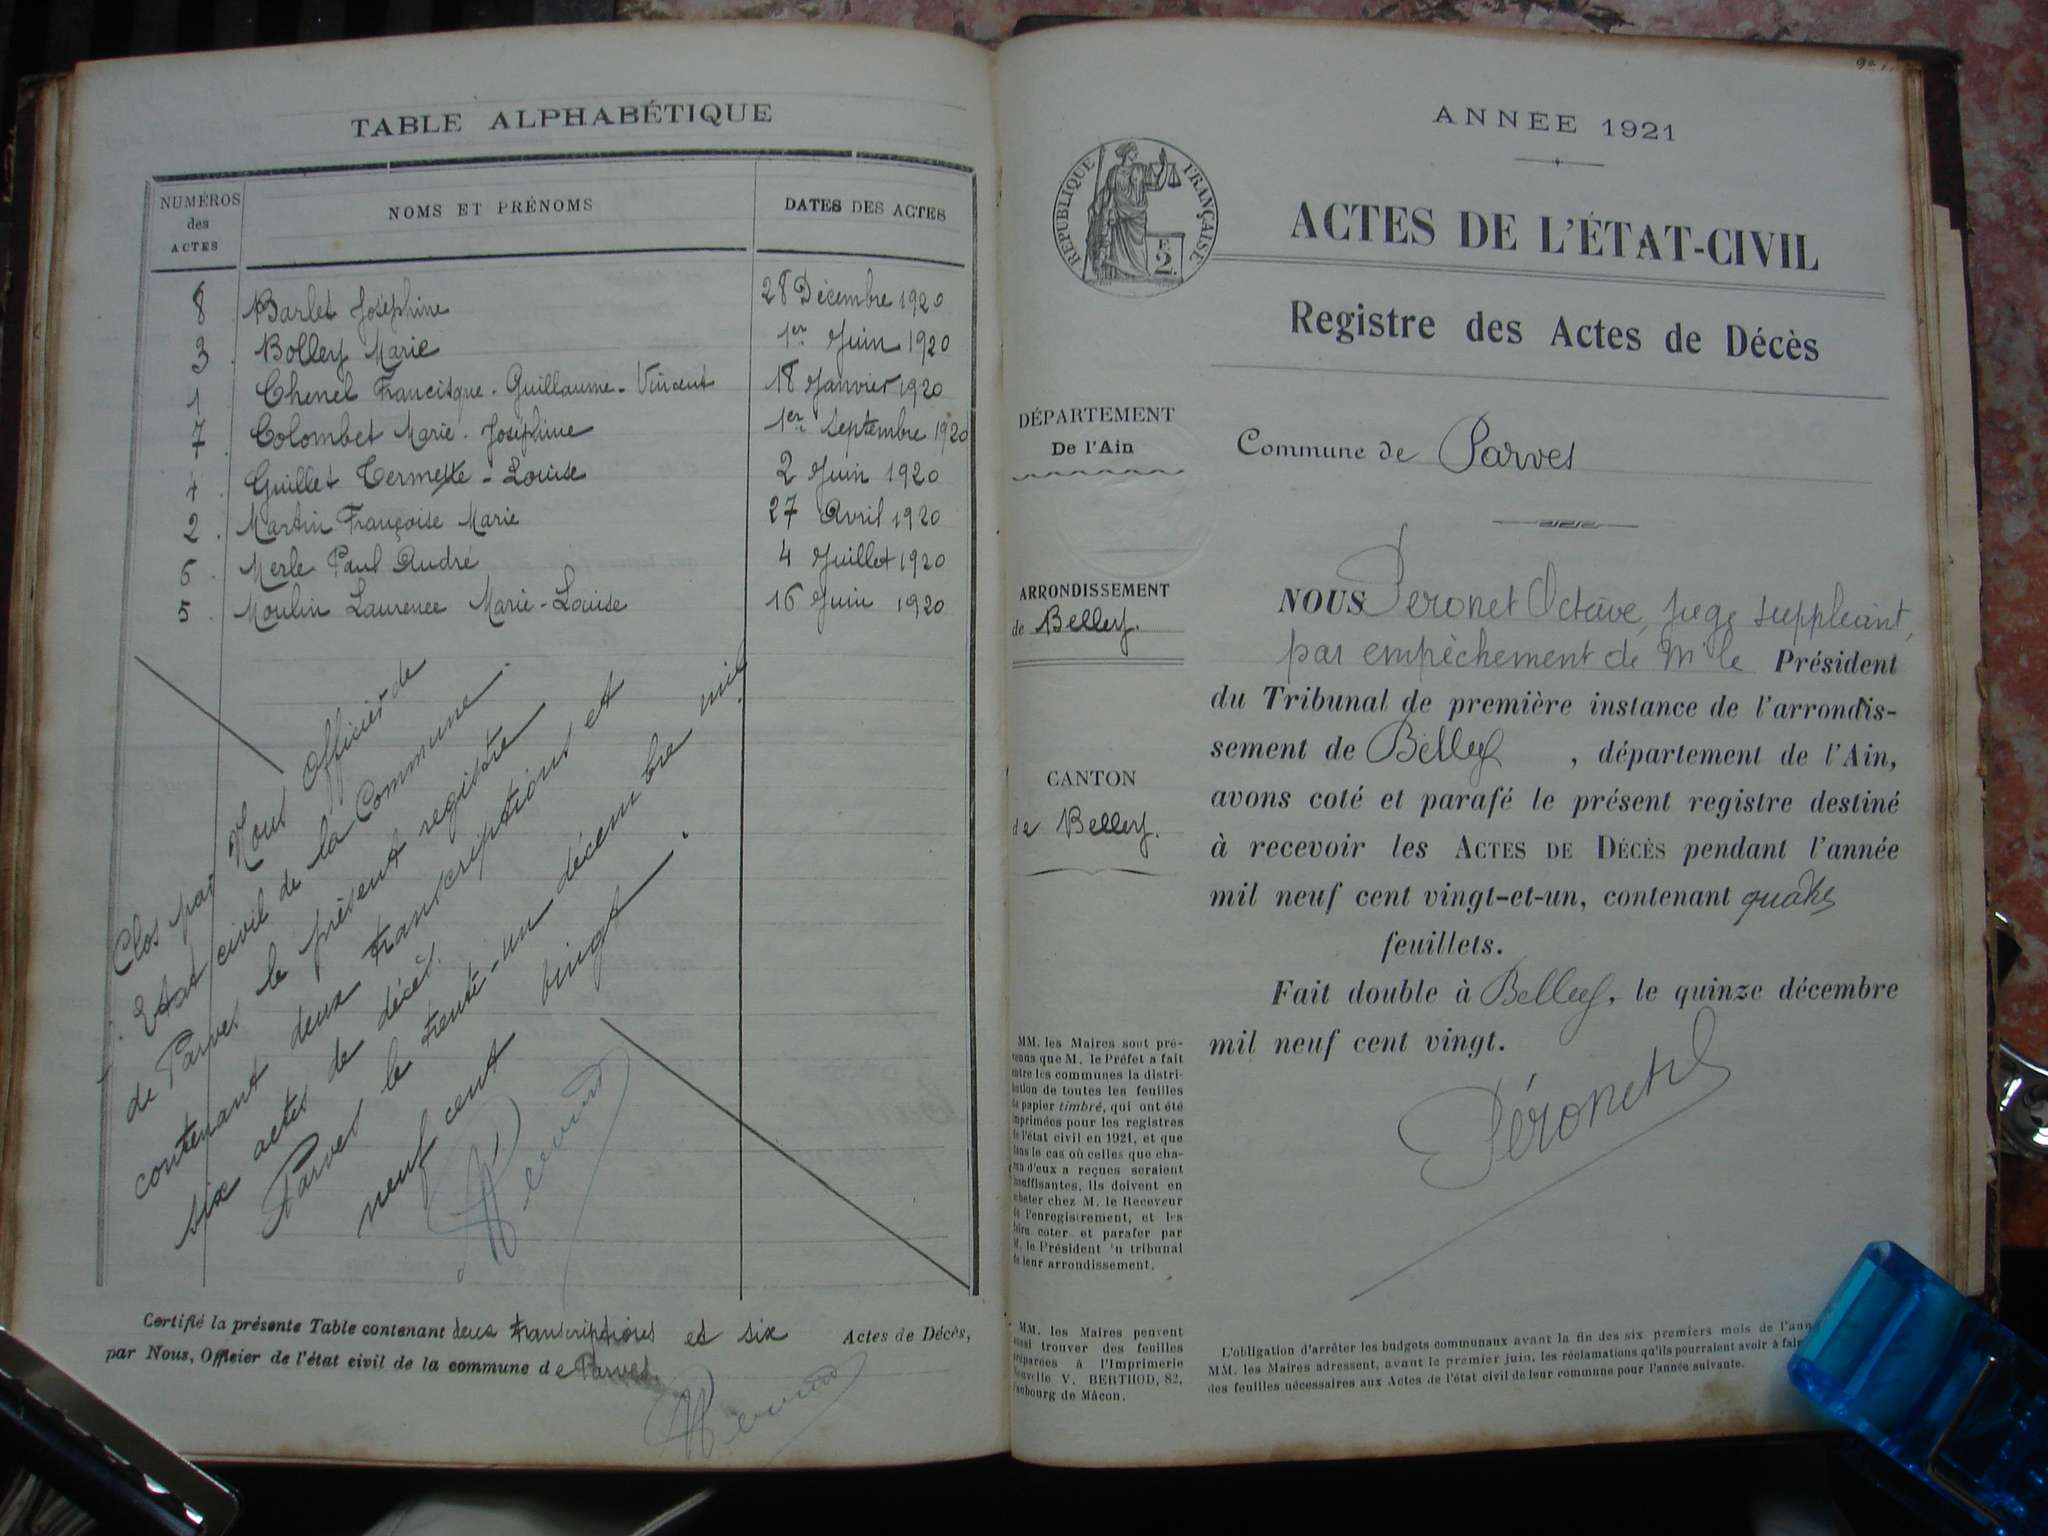 TABLE ALPHABÉTIQUE
NUMÉROS des ACTES
NOMS ET PRÉNOMS
DATES DES ACTES
8 Barlet Joséphine 28 Décembre 1920
3 Bolley Marie 1er Juin 1920
1 Chenel Francisque-Guillaume-Vincent 18 Janvier 1920
7 Colombet Marie-Joséphine 1er Septembre 1920
4 Guillet -Louise 2 Juin 1920
2 Martin Françoise Marie 27 Avril 1920
6 Merle Paul André 4 Juillet 1920
5 Moulin Laurence Marie-Louise 16 Juin 1920
Clos par Nous Officier de
l'Etat civil de la Commune
de Parves le présent registre
contenant deux transcriptions et
six actes de décès.
Parves le trente-un décembre mil
neuf cent vingt.
Certifié la présente Table contenant deux transcriptions et six Actes de Décès,
par Nous, Officier de l'état civil de la commune de Parves.
ANNÉE 1921
RÉPUBLIQUE FRANÇAISE
2 F.
ACTES DE L'ÉTAT-CIVIL
Registre des Actes de Décès
DÉPARTEMENT
De l'Ain
Commune de Parves
ARRONDISSEMENT
de Belley.
CANTON
de Belley.
NOUS Péronet Octave, juge suppléant,
par empêchement de Mr le Président
du Tribunal de première instance de l'arrondis-
sement de Belley, département de l'Ain,
avons coté et parafé le présent registre destiné
à recevoir les ACTES DE DÉCÈS pendant l'année
mil neuf cent vingt-et-un, contenant quatre
feuillets.
Fait double à Belley, le quinze décembre
mil neuf cent vingt.
Péronet
MM. les Maires sont pré-
venus que M. le Préfet a fait
entre les communes la distri-
bution de toutes les feuilles
de papier timbré, qui ont été
imprimées pour les registres
de l'état civil en 1921, et que
dans le cas où celles que cha-
cun d'eux a reçues seraient
insuffisantes, ils doivent en
acheter chez M. le Receveur
de l'enregistrement, et les
faire coter et parafer par
M. le Président du tribunal
de leur arrondissement.
MM. les Maires peuvent
aussi trouver des feuilles
préparées à l'Imprimerie
Nouvelle V. BERTHOD, 82,
Faubourg de Mâcon.
L'obligation d'arrêter les budgets communaux avant la fin des six premiers mois de l'ann
MM. les Maires adressent, avant le premier juin, les réclamations qu'ils pourraient avoir à fair
des feuilles nécessaires aux Actes de l'état civil de leur commune pour l'année suivante.